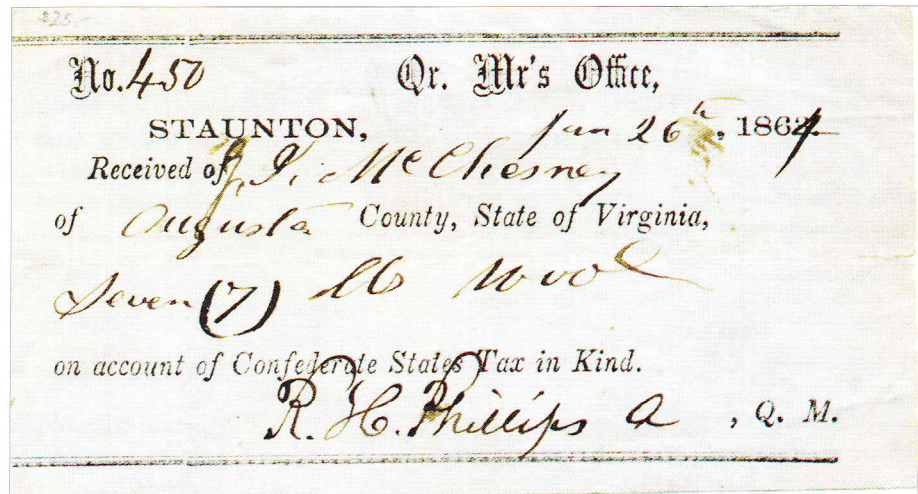 $25.-
No. 450 Qr. Mr's Office,
STAUNTON, Jan 26th, 1864
Received of J. I. McChesney
of Augusta County, State of Virginia,
Seven (7) lbs wool
on account of Confederate States Tax in Kind.
R. H. Phillips A, Q. M.